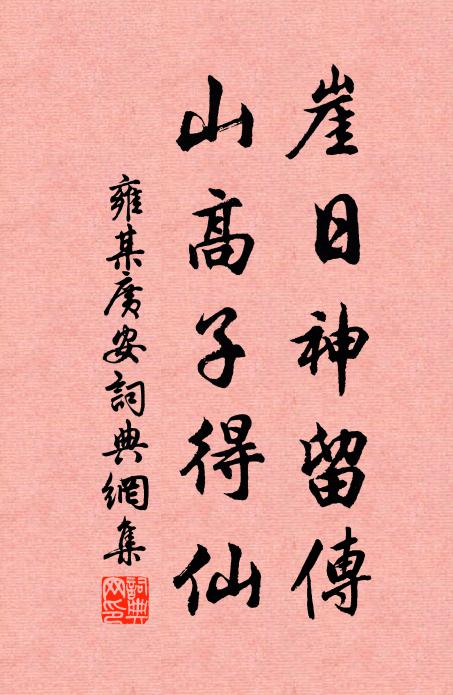 崖日神留傳
山高子得仙
雍某廣安詞典網集
詞典網印